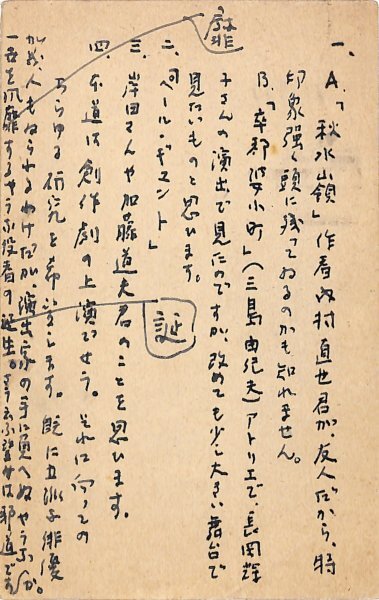 一、A、「秋水嶺」作者内村直也君が、友人だから、特
印象強く頭に残ってゐるのかも知れません。
B、「卒都婆小町」(三島由紀夫)アトリエで、長岡輝
子さんの演出で見たのですが、改めても少し大きい舞台で
見たいものと思ひます。
二、「ペール・ギュント」
三、岸田さんや加藤道夫君のことを思ひます。
四、本道は創作劇の上演でせう。それに向っての
あらゆる研究を希望します。既に立派な俳優
人もゐられるわけだが、演出家の手に負へぬやうな
一世を風靡するやうな役者の誕生。さういふ望みは邪道です
靡
誕